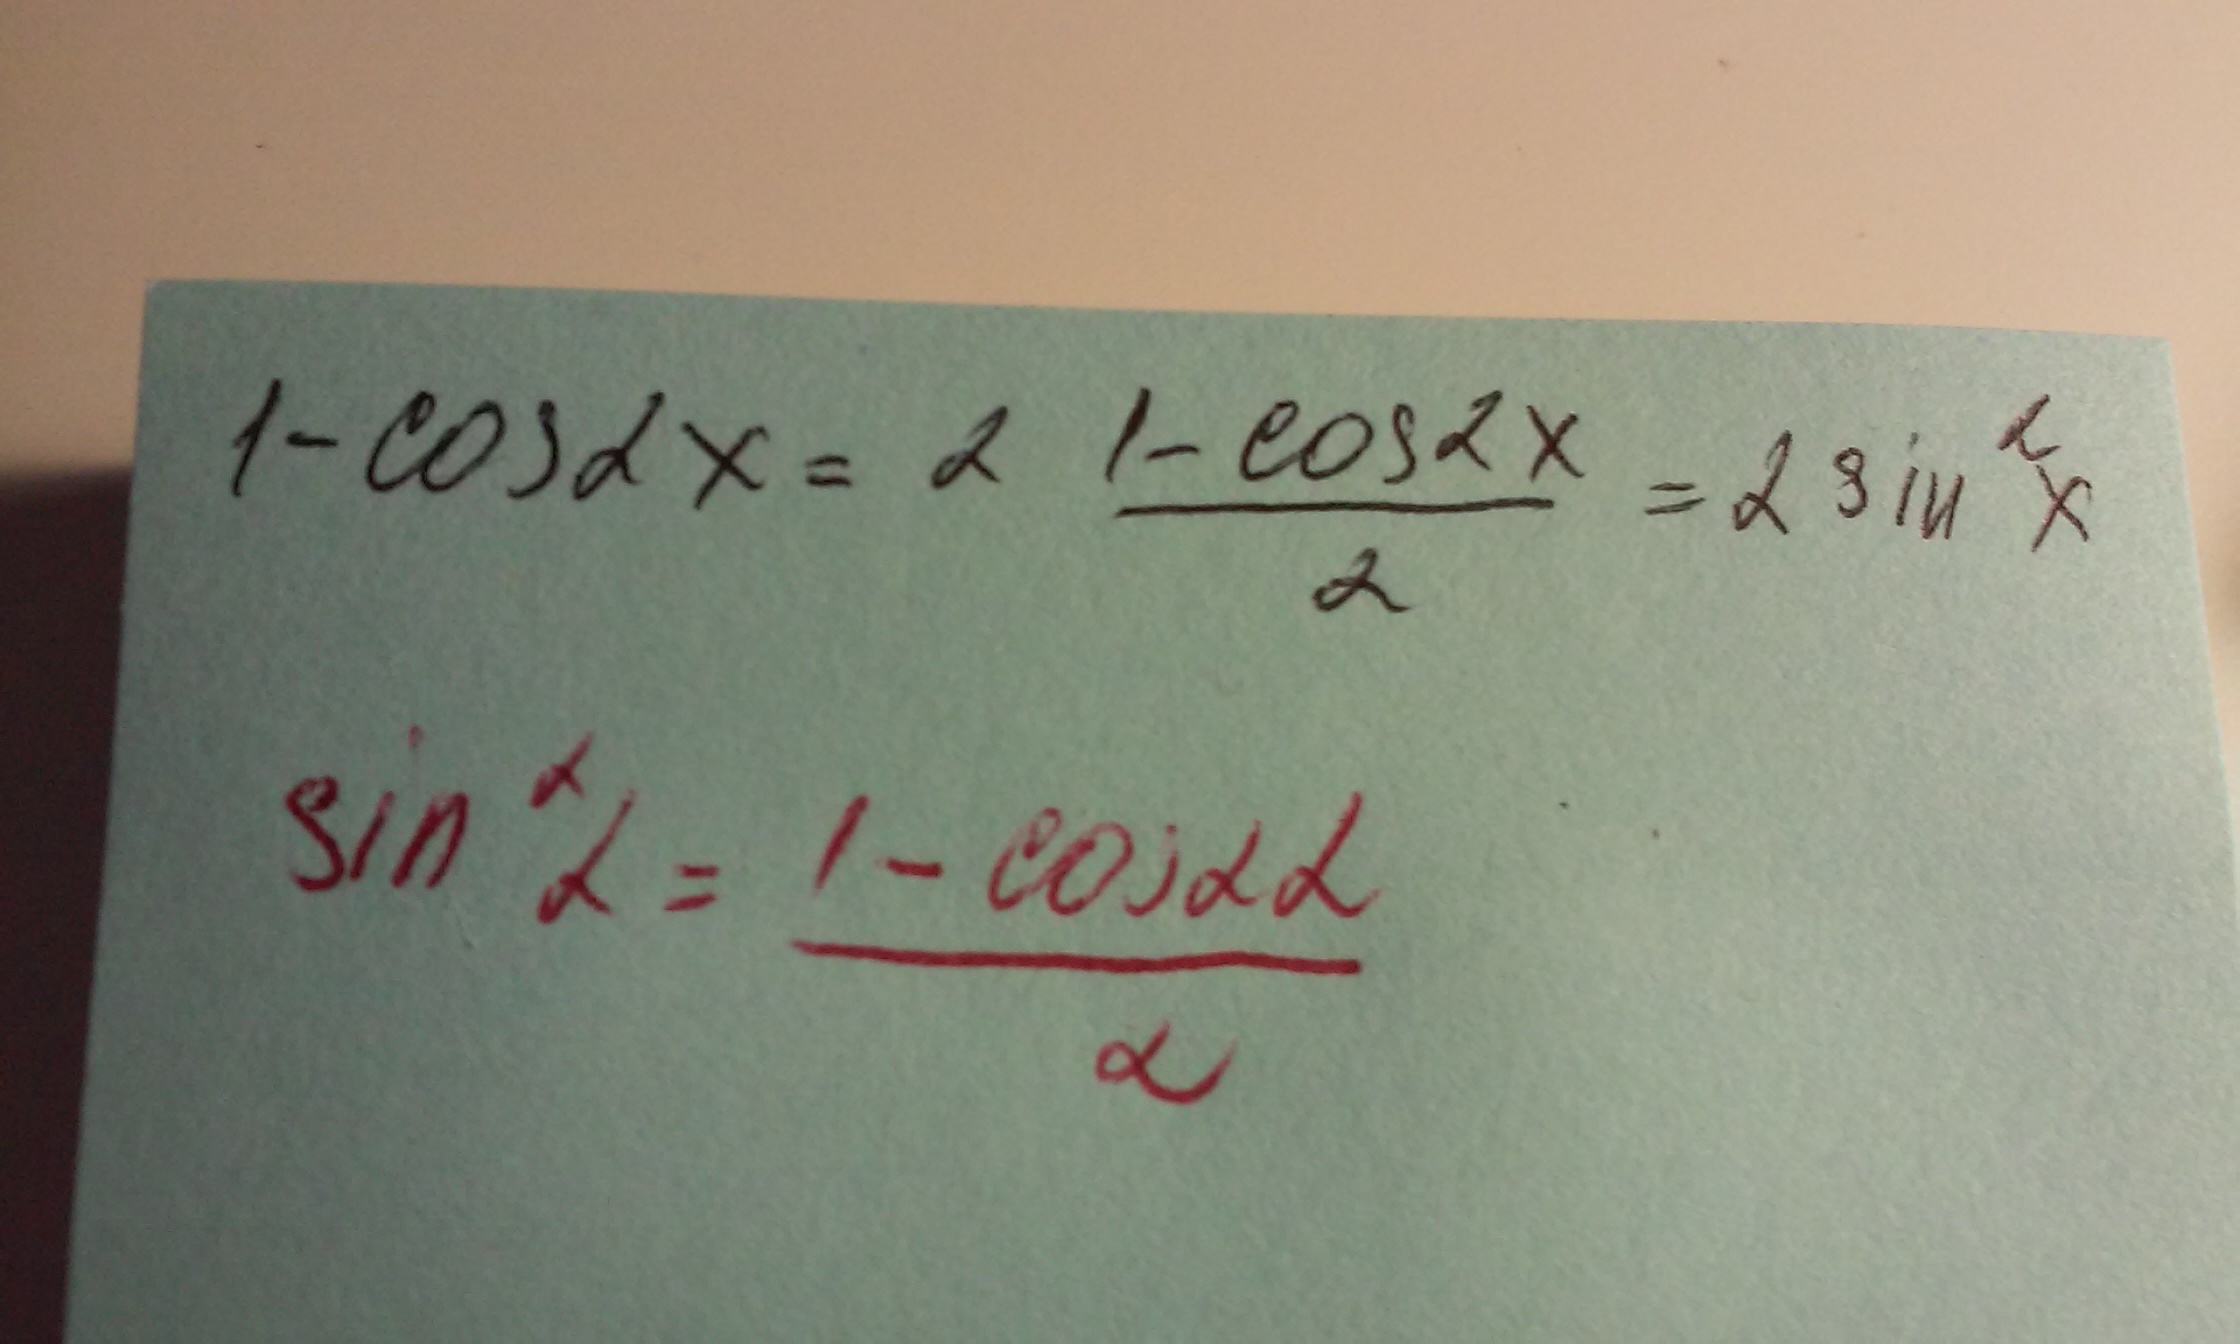 1 - cos2x = 2 (1 - cos2x)/2 = 2 sin²x
sin²α = (1 - cos2α)/2